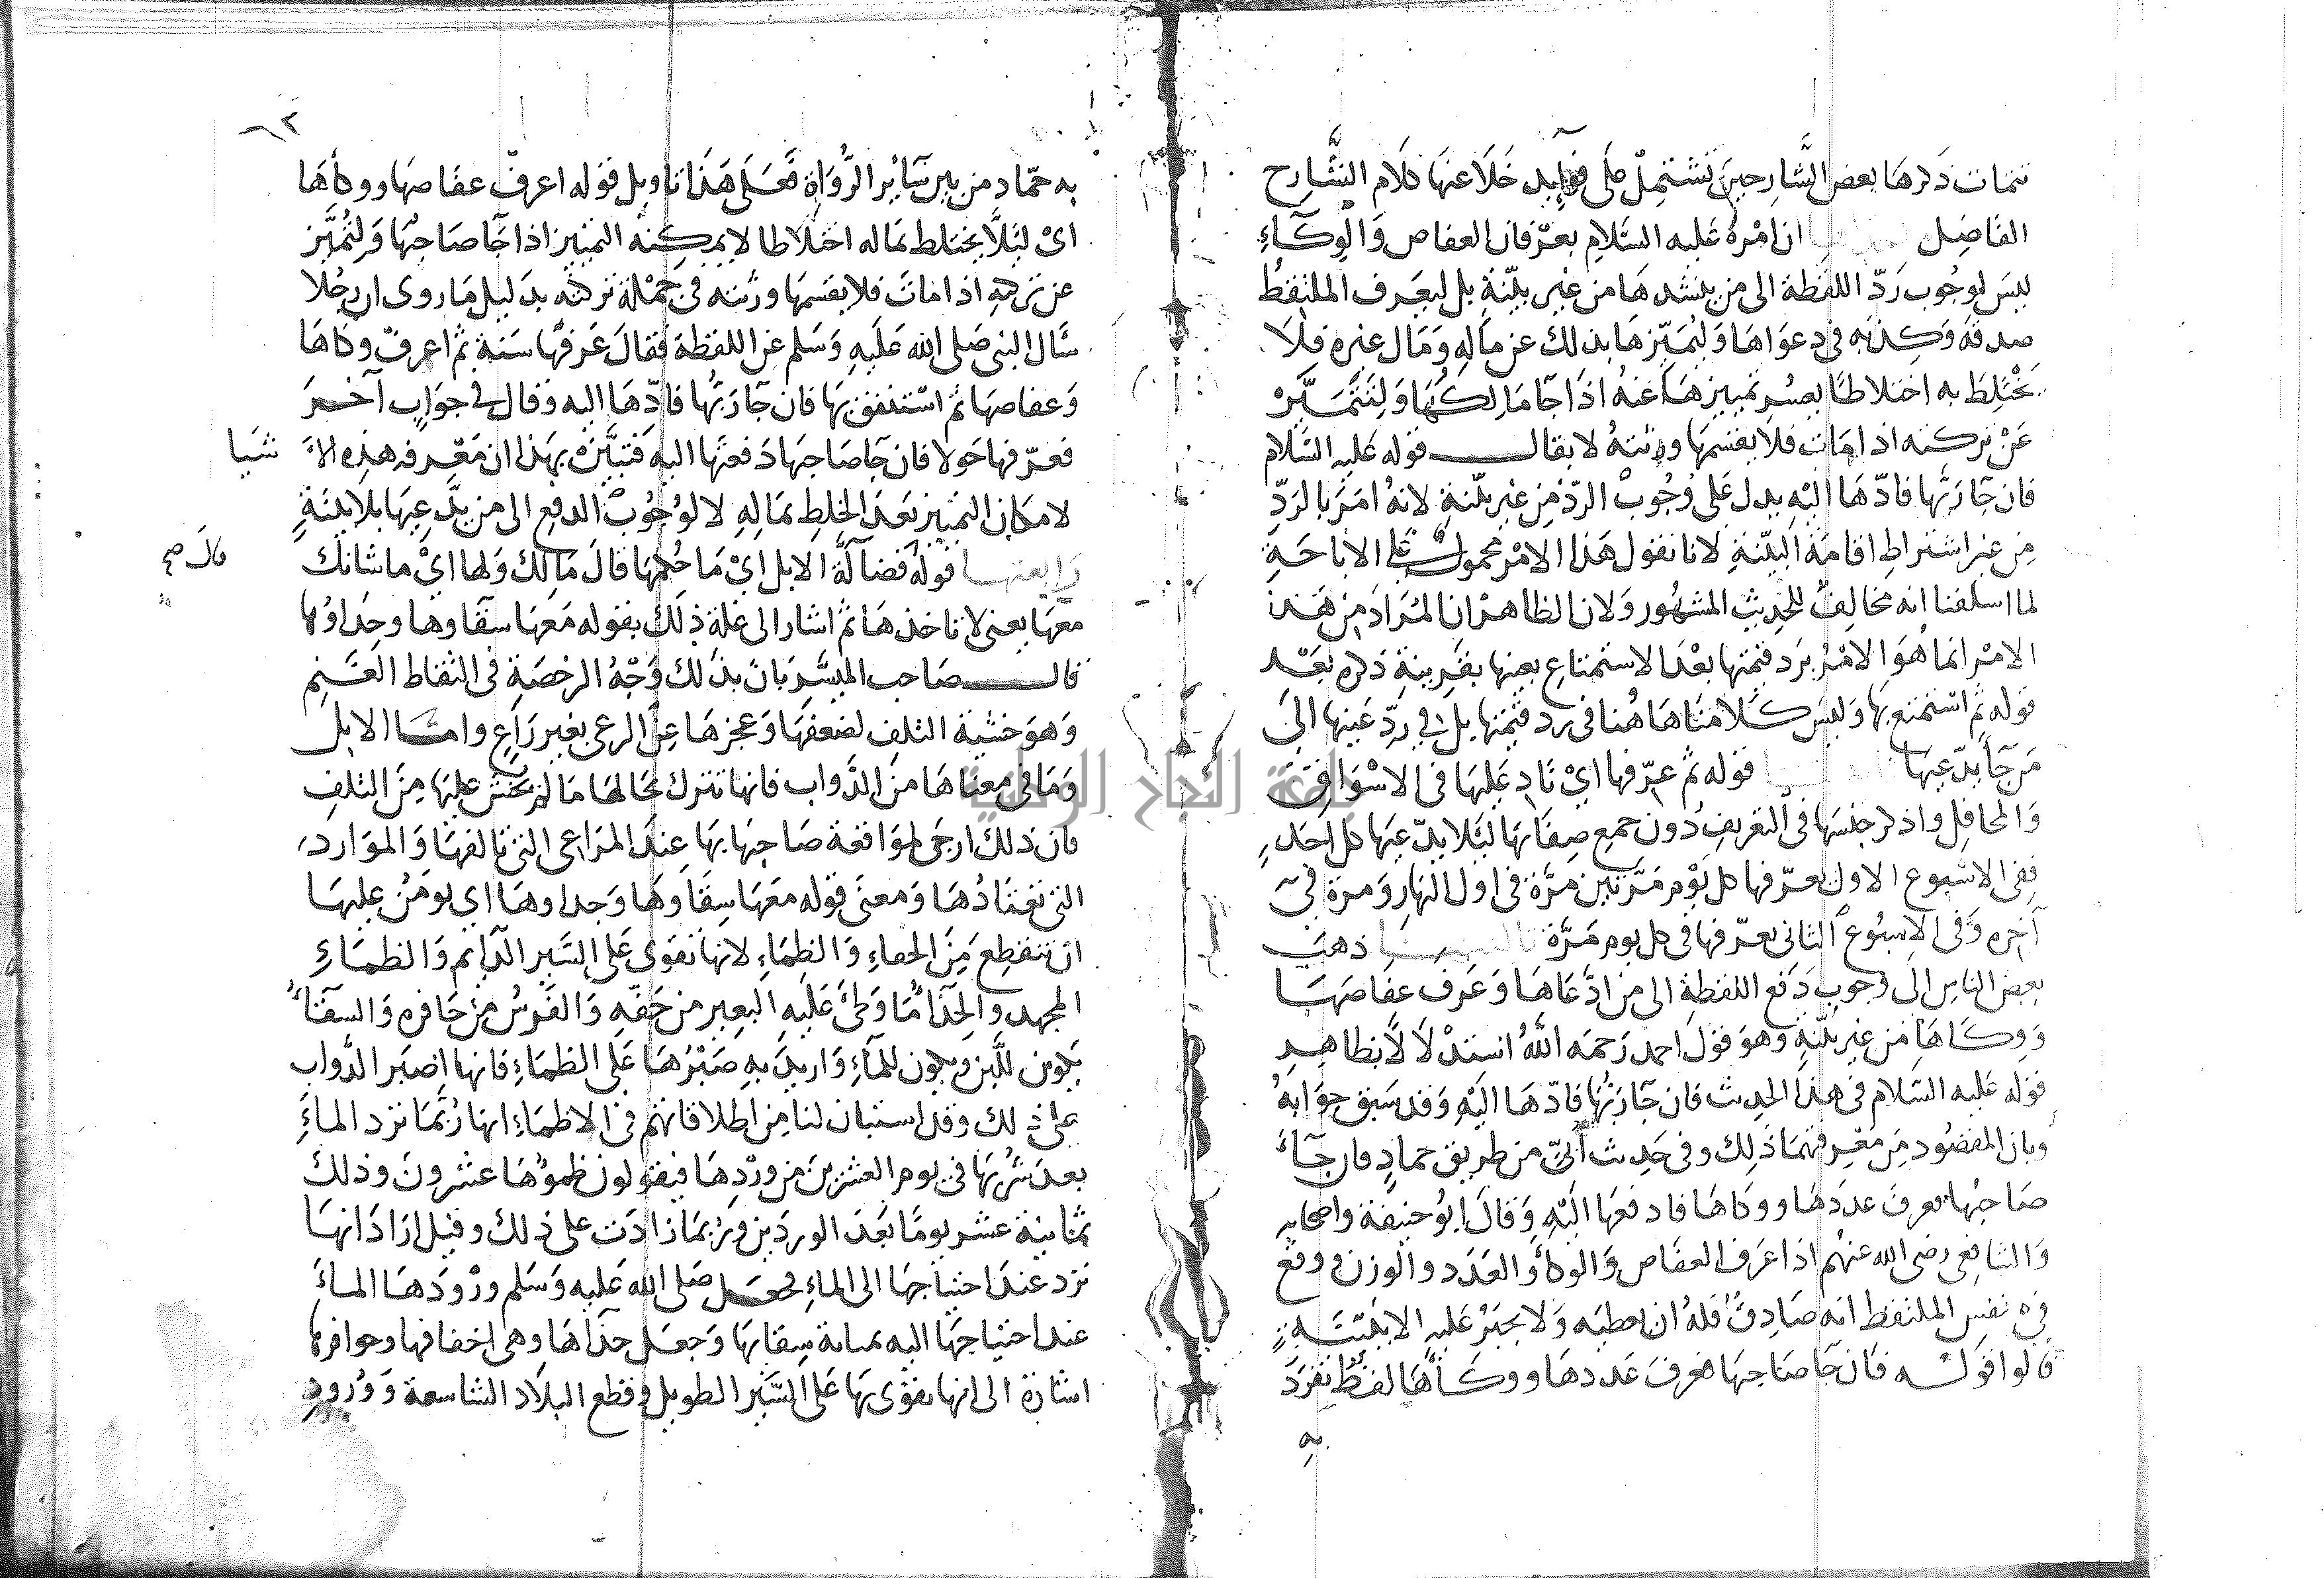 تتمات ذكرها بعض الشارحين تشتمل على فوايد خلا عنها كلام الشارح
الفاضل ان امره عليه السلام بعرفان العفاص والوكآء
ليس لوجوب رد اللقطة الى من ينشدها من غير بينة بل ليعرف الملتقط
صدقه وكذبه فى دعواها وليميزها بذلك عن ماله ومال غيره فلا
تختلط به اختلاطا يعسر تمييزها عنه اذا جآ مالكها ولتتميز
عن تركته اذا مات فلا يقسمها ورثته لا يقال قوله عليه السلام
فان جآ ربها فادها اليه يدل على وجوب الرد من غير بينة لانه امر بالرد
من غير اشتراط اقامة البينة لانا نقول هذا الامر محمول على الاباحة
لما اسلفنا انه مخالف للحديث المشهور ولان الظاهر ان المراد من هذا
الامر انما هو الامر برد قيمتها بعد الاستمتاع بعينها بقرينة ذكره بعد
قوله ثم استمتع بها وليس كلامنا هاهنا فى رد قيمتها بل فى رد عينها الى
من جآ يدعيها قوله ثم عرفها اى ناد عليها فى الاسواق
والمحافل واذكر جنسها فى التعريف دون جميع صفاتها ليلا يدعيها كل احد
ففى الاسبوع الاول يعرفها كل يوم مرتين مرة فى اول النهار ومرة فى
آخره وفى الاسبوع الثانى يعرفها فى كل يوم مرة ذهب
بعض الناس الى وجوب دفع اللقطة الى من ادعاها وعرف عفاصها
ووكاها من غير بينة وهو قول احمد رحمه الله استدلالا بظاهر
قوله عليه السلام فى هذا الحديث فان جآ ربها فادها اليه وقد سبق جوابه
وبان المقصود من معرفتهما ذلك وفى حديث ابى من طريق حماد فان جآء
صاحبها فعرف عددها ووكاها فادفعها اليه وقال ابو حنيفة واصحابه
والشافعى رضى الله عنهم اذا عرف العفاص والوكآ والعدد والوزن ووقع
فى نفس الملتقط انه صادق فله ان يعطيه ولا يجبر عليه الا ببينة
قالوا قوله فان جآ صاحبها فعرف عددها ووكآها لفظ تفرد
به
٦٢
به حماد من بين سآئر الرواة فعلى هذا تاويل قوله اعرف عفاصها ووكآها
اى ليلا يختلط بماله اختلاطا لا يمكنه التمييز اذا جآ صاحبها ولتميز
عن تركته اذا مات فلا يقسمها ورثته فى جملة تركته بدليل ما روى ان رجلا
سال النبى صلى الله عليه وسلم عن اللقطة فقال عرفها سنة ثم اعرف وكاها
وعفاصها ثم استنفق بها فان جآ ربها فادها اليه وقال فى جواب آخر
فعرفها حولا فان جآ صاحبها دفعتها اليه فتبين بهذا ان معرفه هذه الا شيا
لامكان التمييز بعد الخلط بماله لا لوجوب الدفع الى من يدعيها بلا بينة
رابعتها قوله فضآلة الابل اى ما حكمها قال مالك ولها اى ما شانك
قال صح
معها يعنى لا تاخذها ثم اشار الى علة ذلك بقوله معها سقاوها وحذاوها
قال صاحب الميسر بان بذلك وجه الرخصة فى التقاط الغنم
وهو خشية التلف لضعفها وعجزها عن الرعى بغير راع واما الابل
وما فى معناها من الدواب فانها تترك بحالها ما لم يخش عليها من التلف
فان ذلك ارجى لموافقة صاحبها بها عند المراعى التى تالفها والموارد
التى تعتادها ومعنى قوله معها سقاوها وحذاوها اى يومن عليها
ان تنقطع من الحفاء والظماء لانها تقوى على السير الدايم والظماء
المجهد والحذآ ما وطئ عليه البعير من خفه والفرس من حافره والسقآء
يكون للبن ويكون للماء واريد به صبرها على الظماء فانها اصبر الدواب
على ذلك وقد استبان لنا من اطلاقاتهم فى الاظماء انها ربما ترد المآء
بعد شربها فى يوم العشرين من وردها فيقولون ظموها عشرون وذلك
ثمانية عشر يوما بعد الوردين وربما زادت على ذلك وقيل اراد انها
ترد عند احتياجها الى الماء فجعل صلى الله عليه وسلم ورودها المآء
عند احتياجها اليه بمثابة سقائها وجعل حذآها وهى اخفافها وحوافرها
اشارة الى انها يقوى بها على السير الطويل وقطع البلاد الشاسعة وورود
جامعة النجاح الوطنية